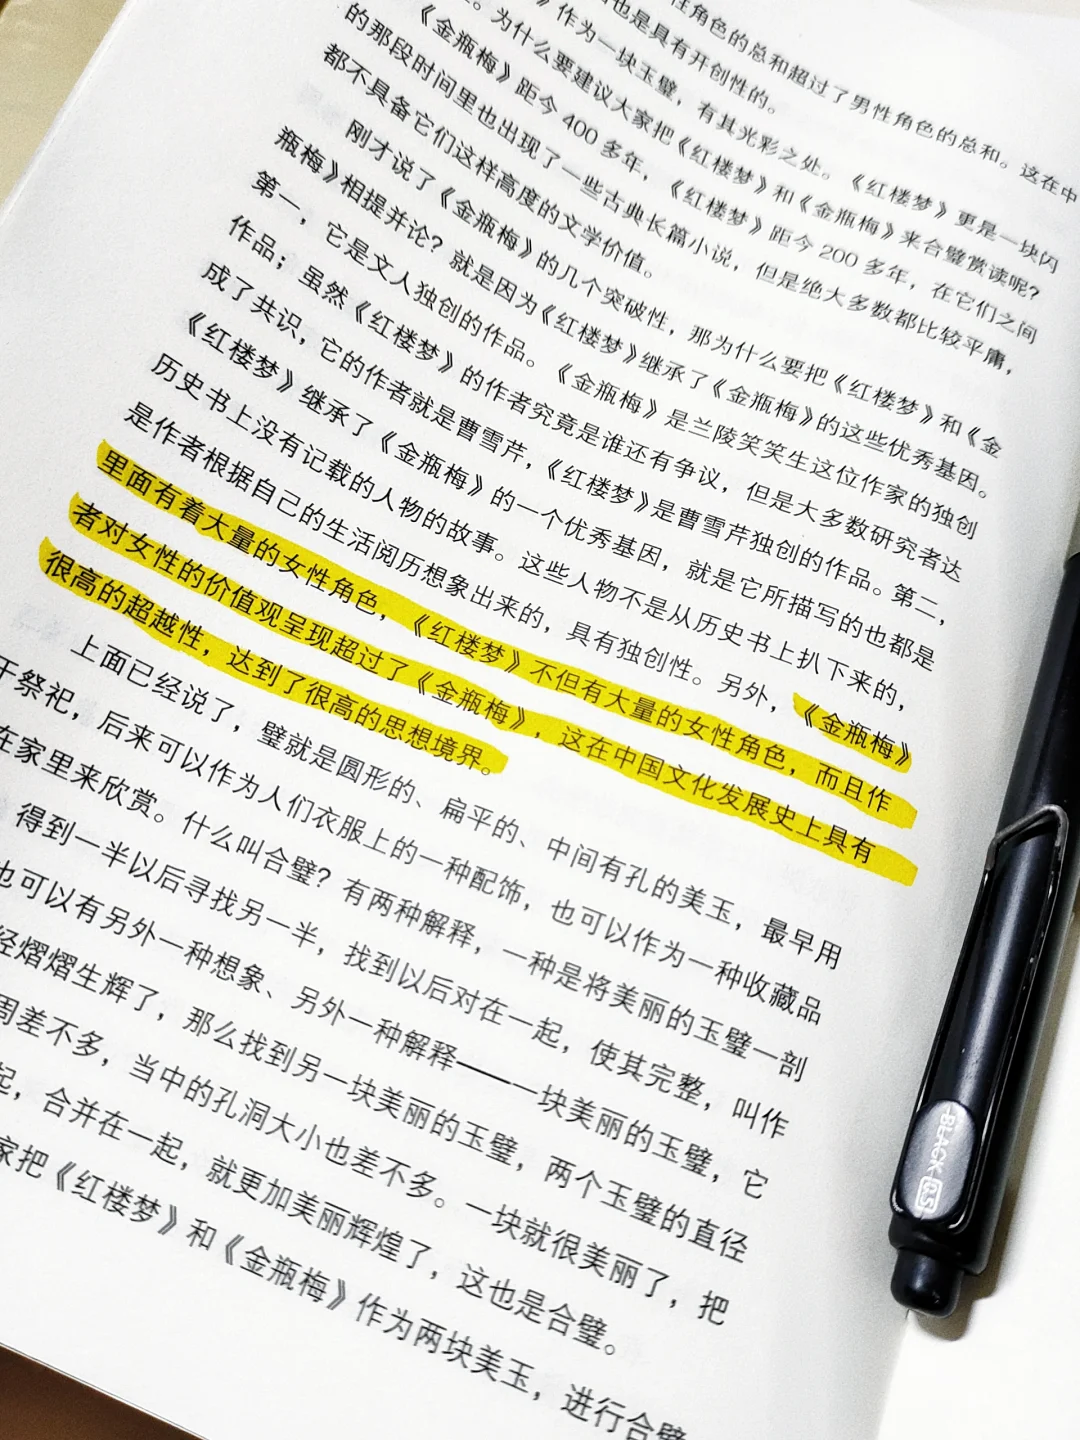 性角色的总和超过了男性角色的总和。这在中
也是具有开创性的。
》作为一块玉璧，有其光彩之处。《红楼梦》更是一块闪
。为什么要建议大家把《红楼梦》和《金瓶梅》来合璧赏读呢？
《金瓶梅》距今400多年，《红楼梦》距今200多年，在它们之间
的那段时间里也出现了一些古典长篇小说，但是绝大多数都比较平庸，
都不具备它们这样高度的文学价值。
刚才说了《金瓶梅》的几个突破性，那为什么要把《红楼梦》和《金
瓶梅》相提并论？就是因为《红楼梦》继承了《金瓶梅》的这些优秀基因。
第一，它是文人独创的作品。《金瓶梅》是兰陵笑笑生这位作家的独创
作品；虽然《红楼梦》的作者究竟是谁还有争议，但是大多数研究者达
成了共识，它的作者就是曹雪芹，《红楼梦》是曹雪芹独创的作品。第二，
《红楼梦》继承了《金瓶梅》的一个优秀基因，就是它所描写的也都是
历史书上没有记载的人物的故事。这些人物不是从历史书上扒下来的，
是作者根据自己的生活阅历想象出来的，具有独创性。另外，《金瓶梅》
里面有着大量的女性角色，《红楼梦》不但有大量的女性角色，而且作
者对女性的价值观呈现超过了《金瓶梅》，这在中国文化发展史上具有
很高的超越性，达到了很高的思想境界。
上面已经说了，璧就是圆形的、扁平的、中间有孔的美玉，最早用
于祭祀，后来可以作为人们衣服上的一种配饰，也可以作为一种收藏品
在家里来欣赏。什么叫合璧？有两种解释，一种是将美丽的玉璧一剖
得到一半以后寻找另一半，找到以后对在一起，使其完整，叫作
也可以有另外一种想象、另外一种解释——一块美丽的玉璧，它
经熠熠生辉了，那么找到另一块美丽的玉璧，两个玉璧的直径
周差不多，当中的孔洞大小也差不多。一块就很美丽了，把
起，合并在一起，就更加美丽辉煌了，这也是合璧。
家把《红楼梦》和《金瓶梅》作为两块美玉，进行合璧
BLACK 0.5